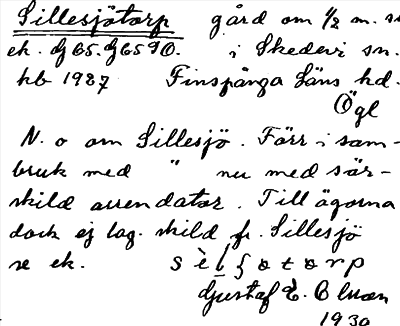 Sillesjötorp gård om 1/2 m. se
ek. dj 65. dj 65 90. i Skedevi sn.
hb 1927 Finspånga Läns hd.
Ögl
N. o om Sillesjö. Förr i sam-
bruk med " nu med sär-
skild arrendator. Till ägorna
dock ej lag. skild fr. Sillesjö
se ek.
Gustaf E.
1930